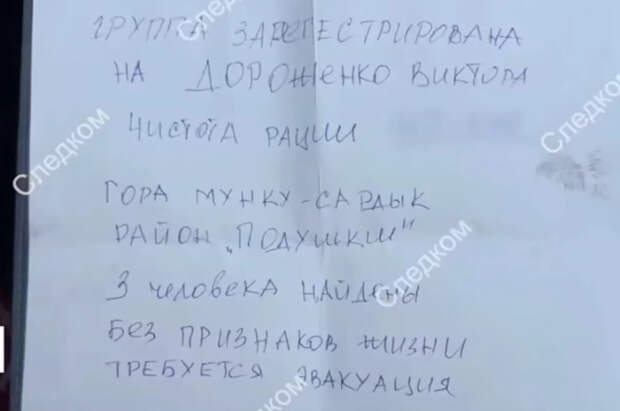 ГРУППА ЗАРЕГЕСТРИРОВАНА
НА ДОРОЖЕНКО ВИКТОРА
ЧИСТОТА РАЦИИ
ГОРА МУНКУ-САРДЫК
РАЙОН „ПОДУШКИ"
3 человека НАЙДЕНЫ
БЕЗ ПРИЗНАКОВ ЖИЗНИ
ТРЕБУЕТСЯ ЭВАКУАЦИЯ
Следком
Следком
Следком
Следком
Следком
Следком